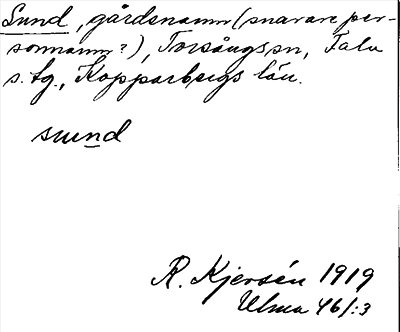 Sund, gårdsnamn (snarare per-
sonnamn?), Torsångs sn, Falu
s. tg., Kopparbergs län.
sund
R. Kjersén 1919
Ulma 46/:3